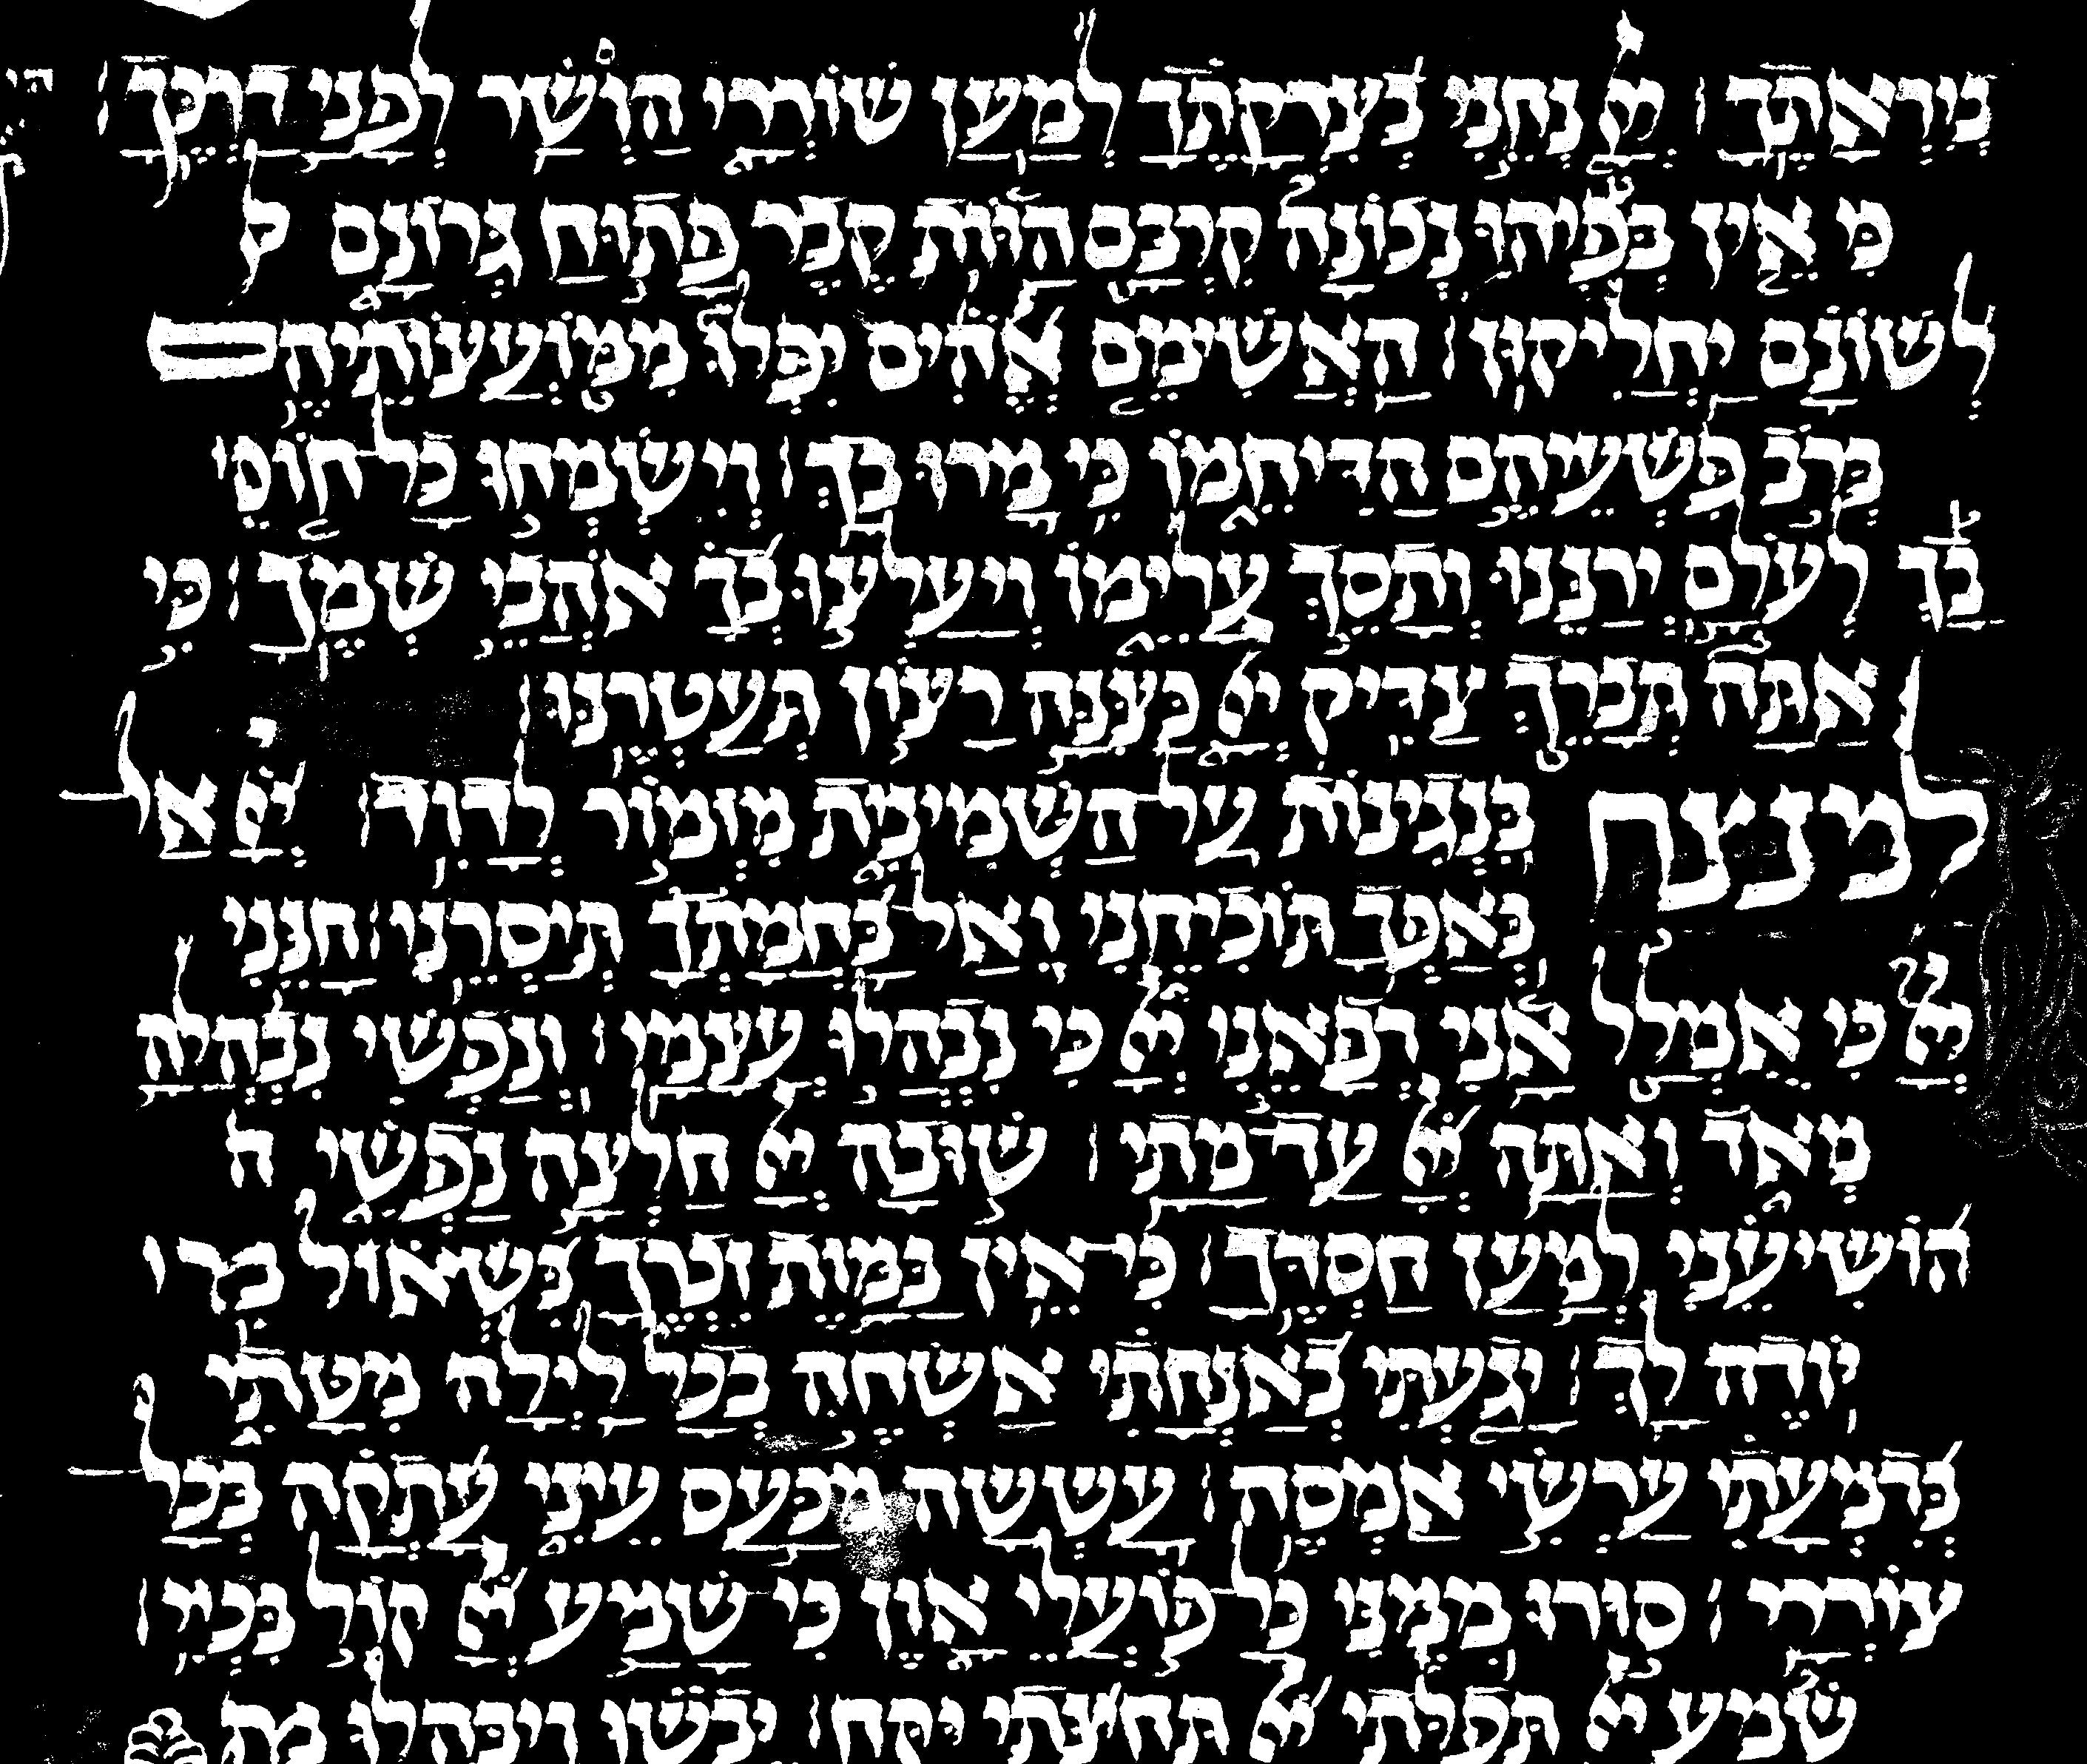 בְּיִרְאָתֶךָ ׀ יְיָ נְחֵנִי בְצִדְקָתֶךָ לְמַעַן שׁוֹרְרָי הַוְשַׁר לְפָנַי דַּרְכֶּךָ ׀
כִּי אֵין בְּפִיהוּ נְכוֹנָה קִרְבָּם הַוּוֹת קֶבֶר פָּתוּחַ גְּרוֹנָם ל
לְשׁוֹנָם יַחֲלִיקוּן ׀ הַאֲשִׁימֵם אֱלֹהִים יִפְּלוּ מִמּוֹעֲצוֹתֵיהֶם
בְּרֹב פִּשְׁעֵיהֶם הַדִּיחֵמוֹ כִּי מָרוּ בָךְ ׀ וְיִשְׂמְחוּ כָל חוֹסֵי
בָךְ לְעֹלָם יְרַנֵּנוּ וְתָסֵךְ עָלֵימוֹ וְיַעְלְצוּ בְךָ אֹהֲבֵי שְׁמֶךָ ׀ כִּי
אַתָּה תְּבָרֵךְ צַדִּיק יְיָ כַּצִּנָּה רָצוֹן תַּעְטְרֶנּוּ ׀
למנצח בִּנְגִינוֹת עַל הַשְּׁמִינִית מִזְמוֹר לְדָוִד ׀ יְיָ אַל־
בְּאַפְּךָ תוֹכִיחֵנִי וְאַל־בַּחֲמָתְךָ תְיַסְּרֵנִי ׀ חָנֵּנִי
יְיָ כִּי אֻמְלַל אָנִי רְפָאֵנִי יְיָ כִּי נִבְהֲלוּ עֲצָמָי ׀ וְנַפְשִׁי נִבְהֲלָה
מְאֹד וְאַתָּה יְיָ עַד־מָתָי ׀ שׁוּבָה יְיָ חַלְּצָה נַפְשִׁי ה
הוֹשִׁיעֵנִי לְמַעַן חַסְדֶּךָ ׀ כִּי־אֵין בַּמָּוֶת זִכְרֶךָ בִּשְׁאוֹל מי
יוֹדֶה לָּךְ ׀ יָגַעְתִּי בְּאַנְחָתִי אַשְׂחֶה בְכָל לַיְלָה מִטָּתִי
בְּדִמְעָתִי עַרְשִׂי אַמְסֶה ׀ עָשְׁשָׁה מִכַּעַס עֵינִי עָתְקָה בְּכָל־
צוֹרְרָי ׀ סוּרוּ מִמֶּנִּי כָּל־פּוֹעֲלֵי אָוֶן כִּי־שָׁמַע יְיָ קוֹל בִּכְיִי ׀
שָׁמַע יְיָ תְּפִלָּתִי יְיָ תְּחִנָּתִי יִקָּח ׀ יֵבֹשׁוּ וְיִבָּהֲלוּ מְ